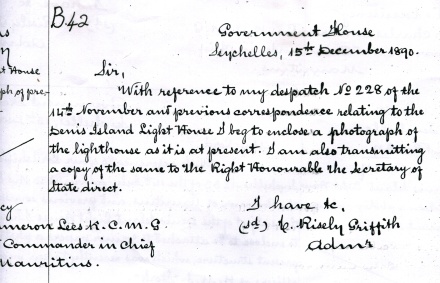 B42
Government House
Seychelles, 15th December 1890.
Sir,
With reference to my despatch No 228 of the
14th November and previous correspondence relating to the
Denis Island Light House I beg to enclose a photograph of
the lighthouse as it is at present. I am also transmitting
a copy of the same to the Right Honourable the Secretary of
State direct.
I have &c.
(sd) T. Risely Griffith
Admr
t House
ph of pre-
cy
meron Lees K.C.M.G
Commander in Chief
Mauritius.